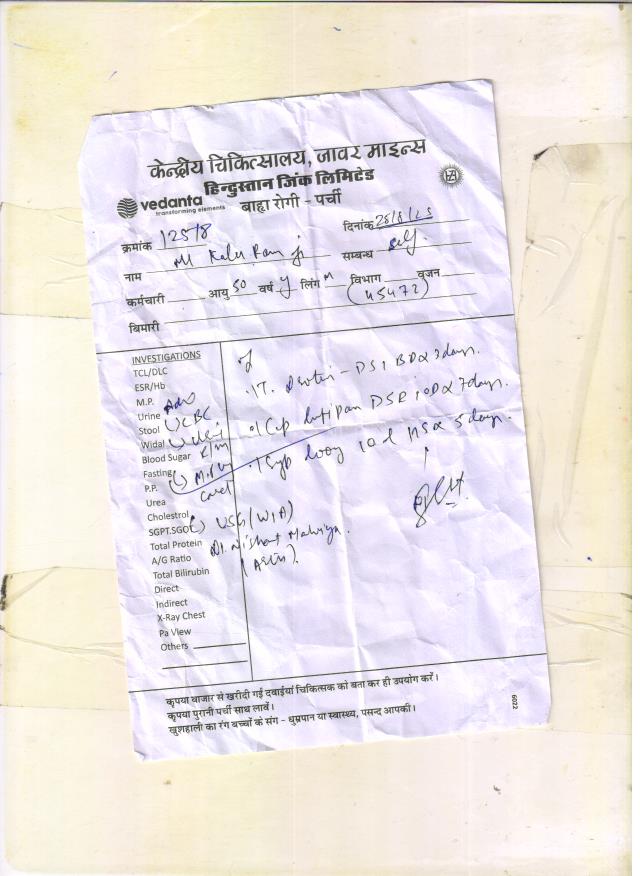 केन्द्रीय चिकित्सालय, जावर माइन्स
हिन्दुस्तान जिंक लिमिटेड
vedanta
transforming elements
बाह्य रोगी - पर्ची
क्रमांक 12518 दिनांक 28/8/25
नाम Kalu Ram ji सम्बन्ध self.
कर्मचारी आयु 50 वर्ष y लिंग M विभाग वजन
(45472)
बिमारी
INVESTIGATIONS
TCL/DLC
ESR/Hb
M.P.
Urine Adv
Stool CBC
Widal
Blood Sugar R/M
Fasting
P.P.
Urea
Cholestrol
SGPT.SGOT USG (W/A)
Total Protein Dr. Nishant
A/G Ratio
Total Bilirubin
Direct
Indirect
X-Ray Chest
Pa View
Others
T. - DS 1 BD x 3 days.
Cap DSR 1 OD x 7 days.
Syp HS x 5 days.
कृपया बाजार से खरीदी गई दबाईयां चिकित्सक को बता कर ही उपयोग करें।
कृपया पुरानी पर्ची साथ लावें।
खुशहाली का रंग बच्चों के संग - धुम्रपान या स्वास्थ्य, पसन्द आपकी।
6022